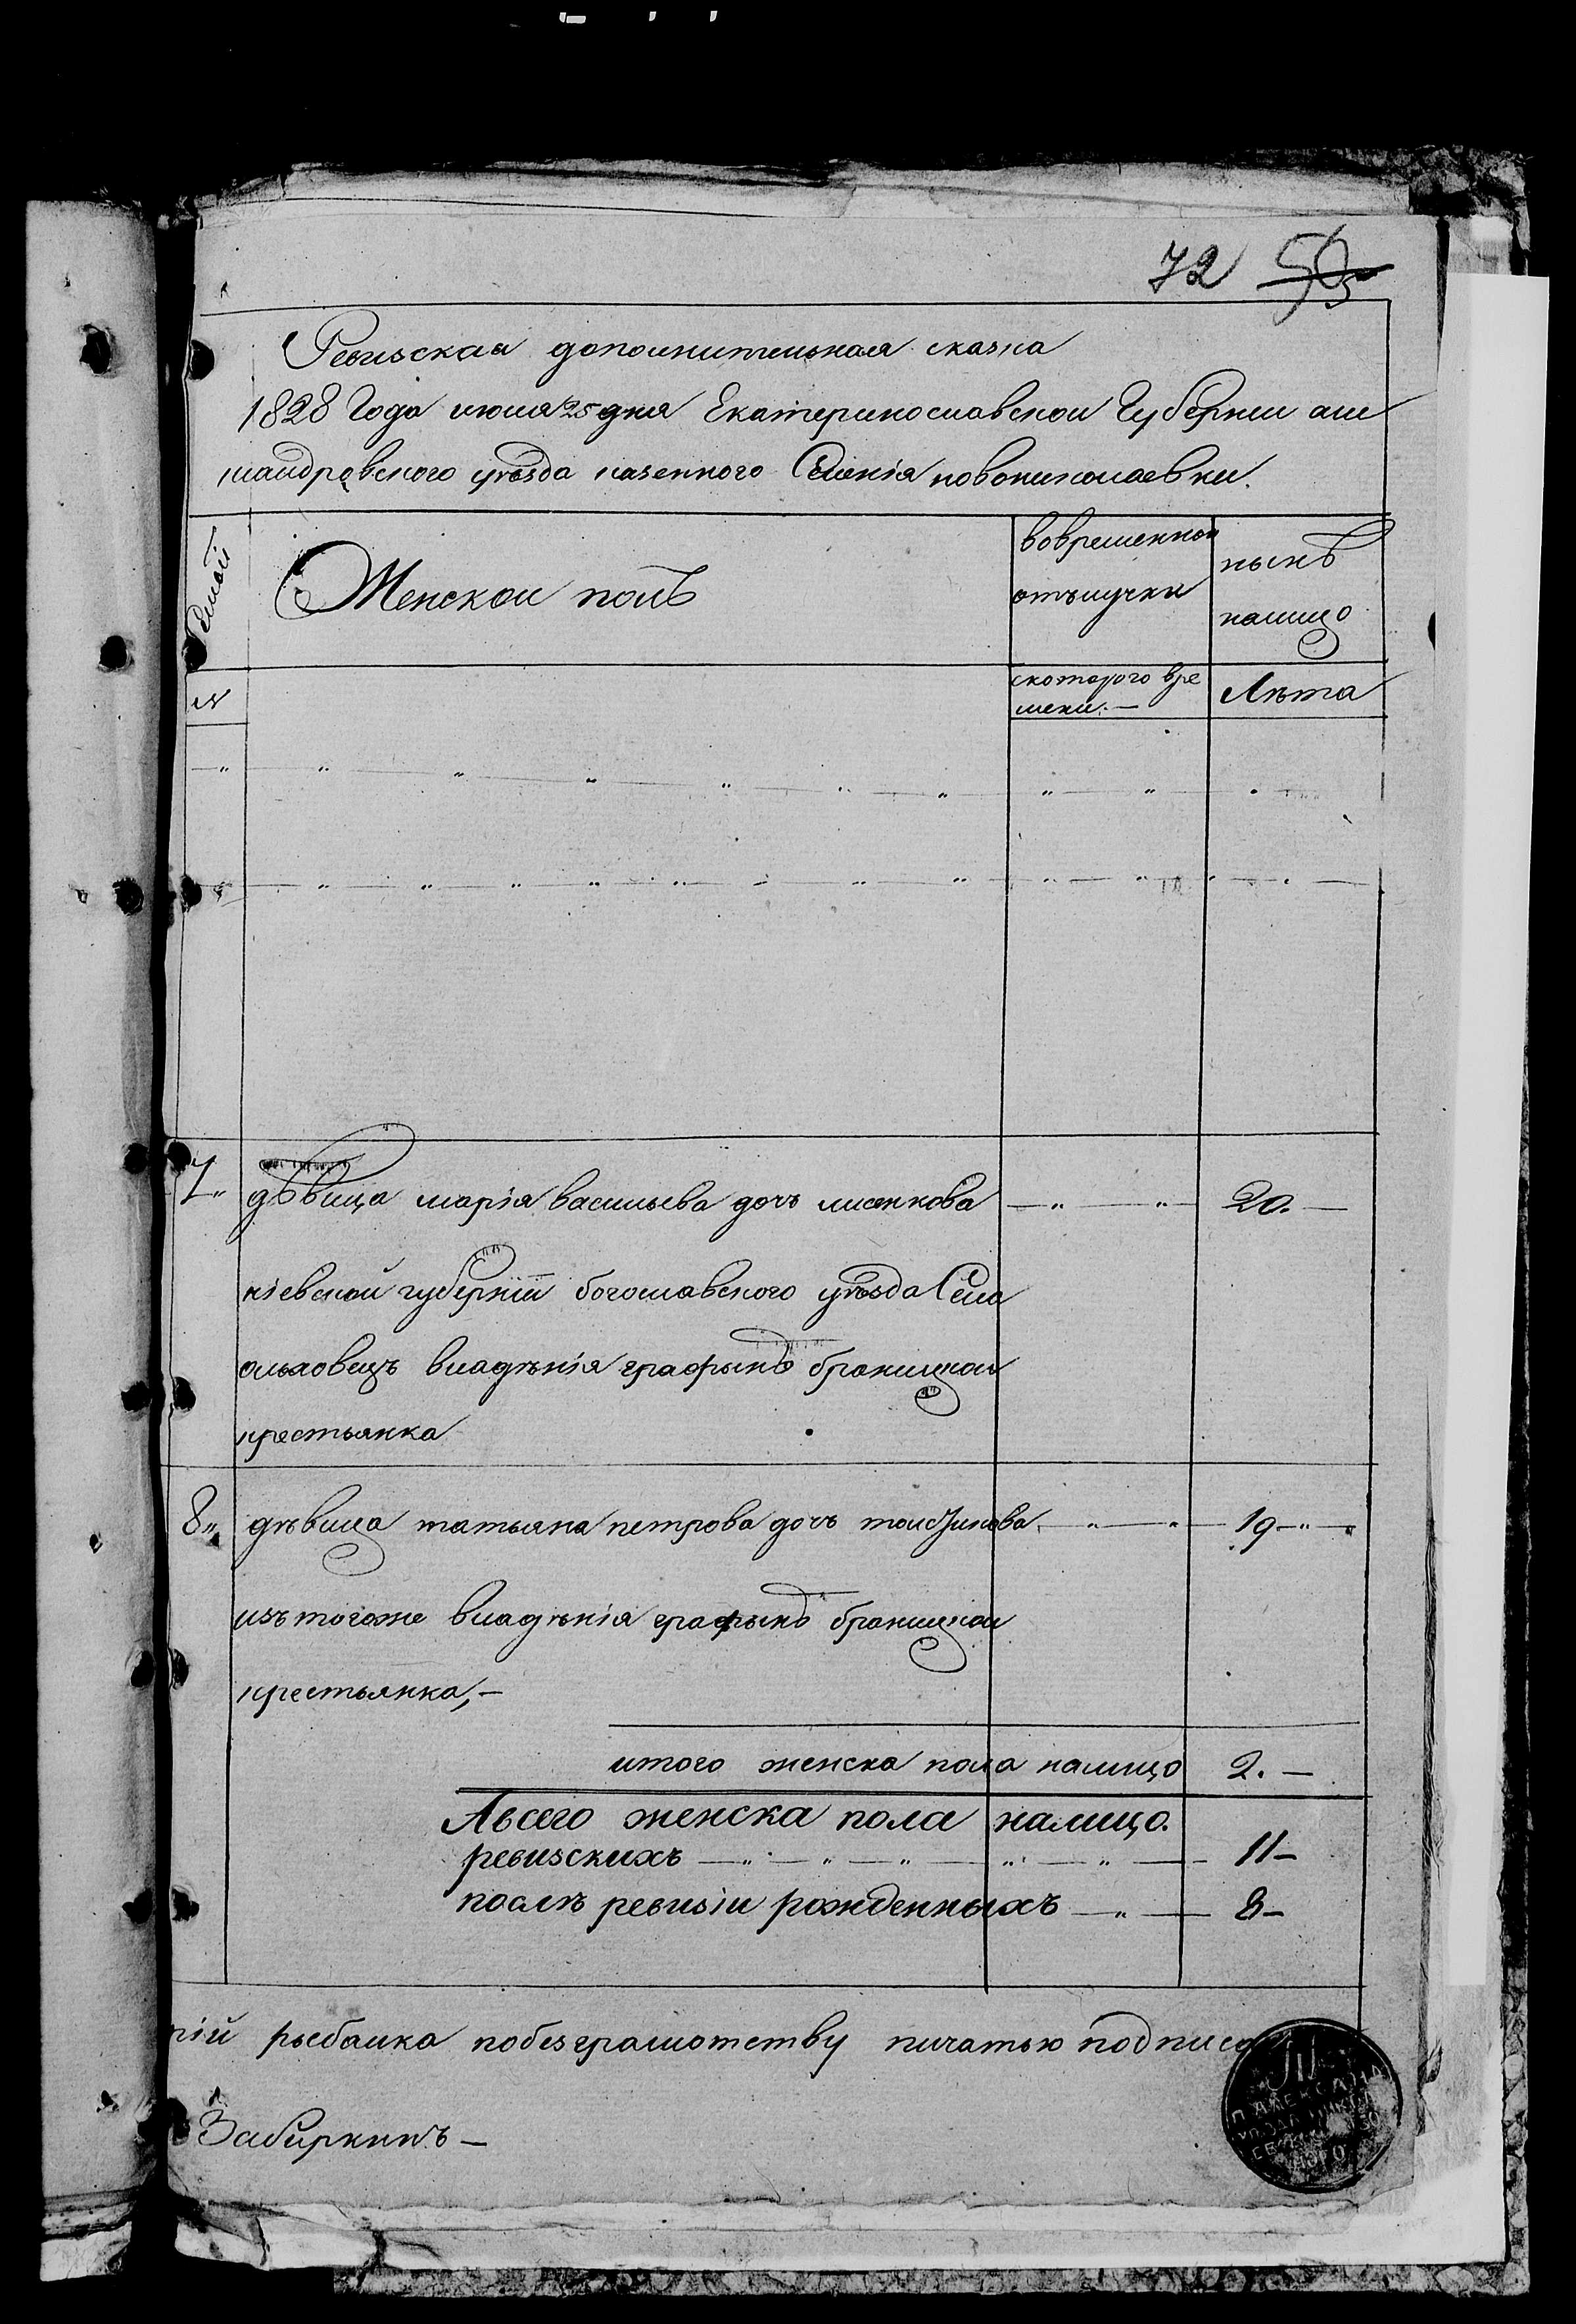 72 56
Ревизская дополнительная сказка
1828 Года июля 25 дня Екатеринославской Губернии але
ксандровского уѣзда казенного Селенія новониколаевки.
Семьи
Женской полъ
вовременной
отълучки
нынѣ
налицо
№
скоторого вре
мени. —
Лѣта
7 дѣвица марія васильева дочь лисенкова 20. —
кіевской губерніи богославского уѣзда Села
ольховецъ владѣнія графинѣ браницкой
крестьянка
8 дѣвица татьяна петрова дочь 19
изъ тогоже владѣнія графинѣ браницкой
крестьянка, —
итого женска пола налицо 2. —
Авсего женска пола налицо.
ревизскихъ 11 —
послѣ ревизіи рожденныхъ 8 —
рій рыбалка побезграмотству пичатью подписа
Забиркинъ —